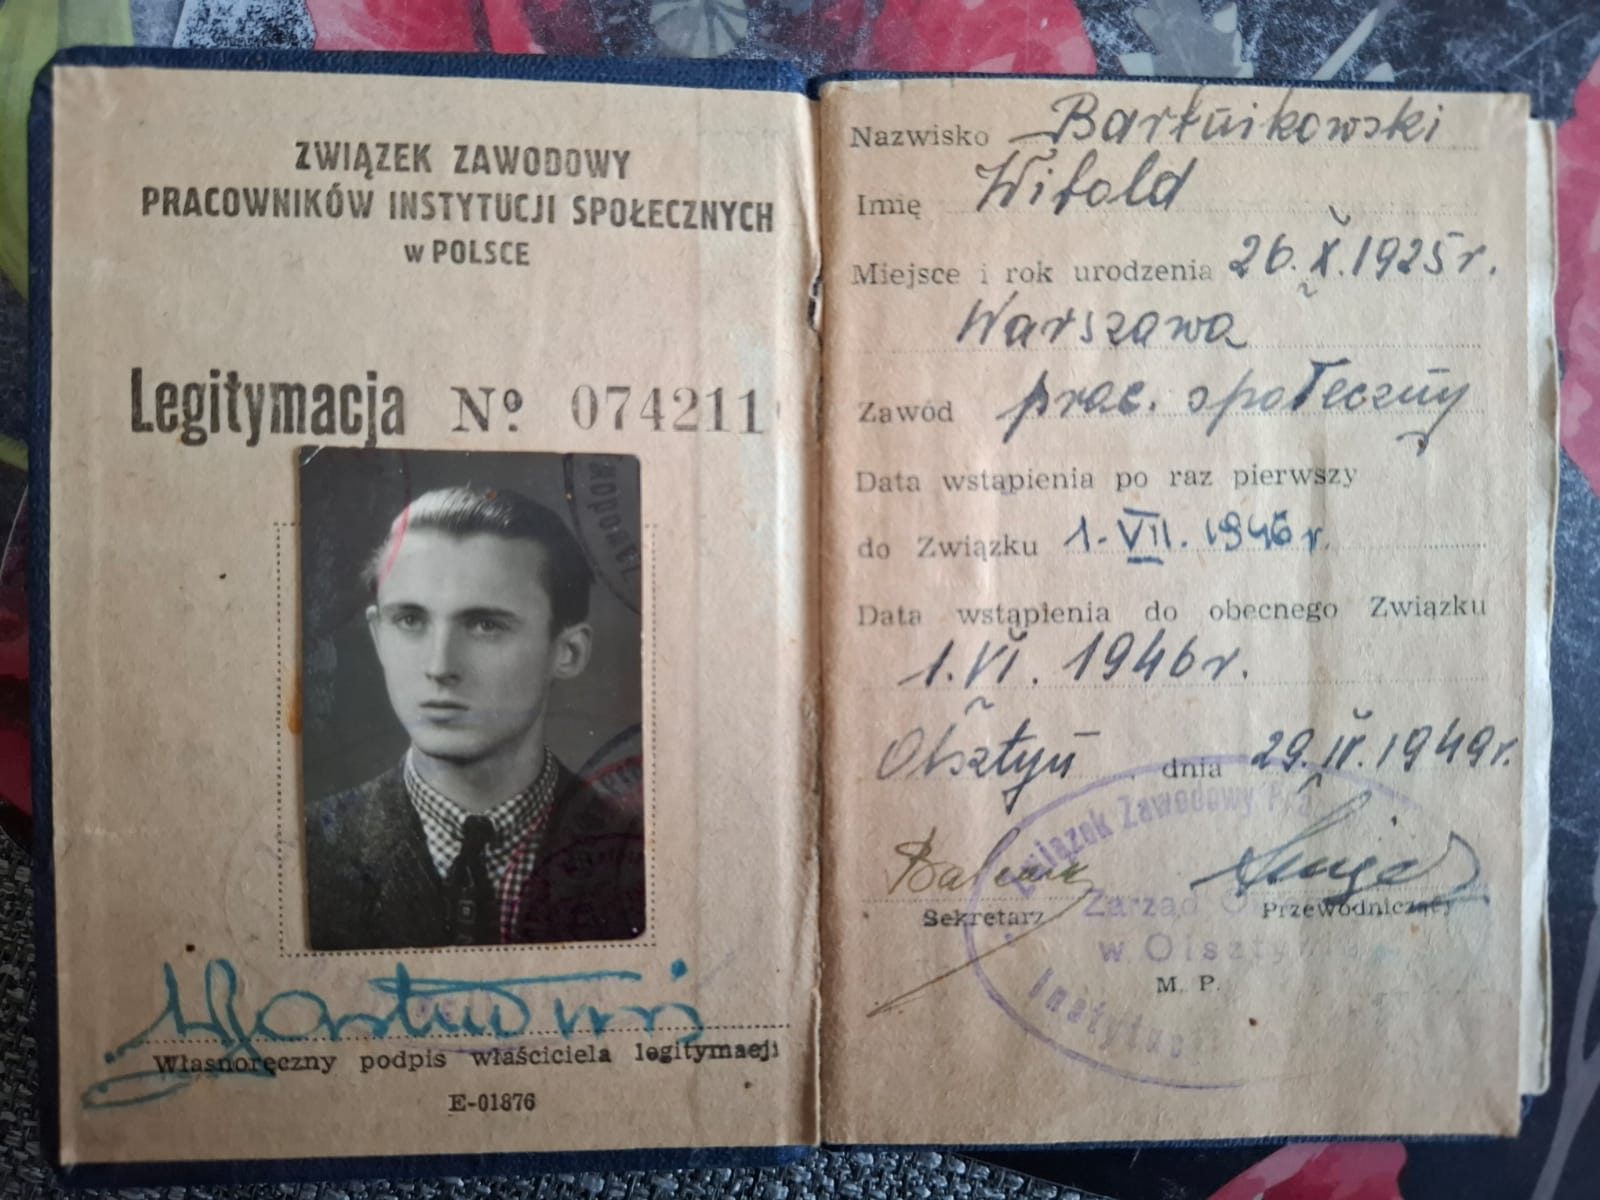 ZWIĄZEK ZAWODOWY
PRACOWNIKÓW INSTYTUCJI SPOŁECZNYCH
w POLSCE
Legitymacja Nº 074211
Zawodow
Własnoręczny podpis właściciela legitymacji
E-01876
Nazwisko Bartnikowski
Imię Witold
Miejsce i rok urodzenia 26.X.1925r.
Warszawa
Zawód prac. społeczny
Data wstąpienia po raz pierwszy
do Związku 1-VII. 1946r.
Data wstąpienia do obecnego Związku
1.VI. 1946r.
Olsztyn dnia 29.IV.1949r.
Związek Zawodowy
Sekretarz Przewodniczący
Zarząd
w Olsztynie
M. P.
Instytuc